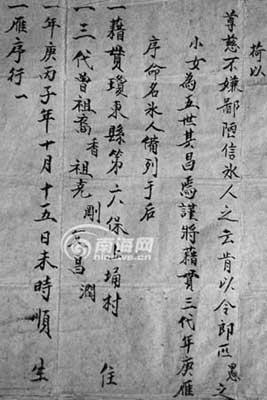 荷以
尊慈不嫌鄙陋信冰人之云肯以令郎匹愚之
小女為五世其昌焉謹將藉貫三代年庚雁
序命名氷人備列于后
一藉貫瓊東縣第六保 埇村 住
一三代曾祖裔香 祖堯剛 父昌潤
一年庚丙子年十月十五日未時順生
一雁序行一
南海网